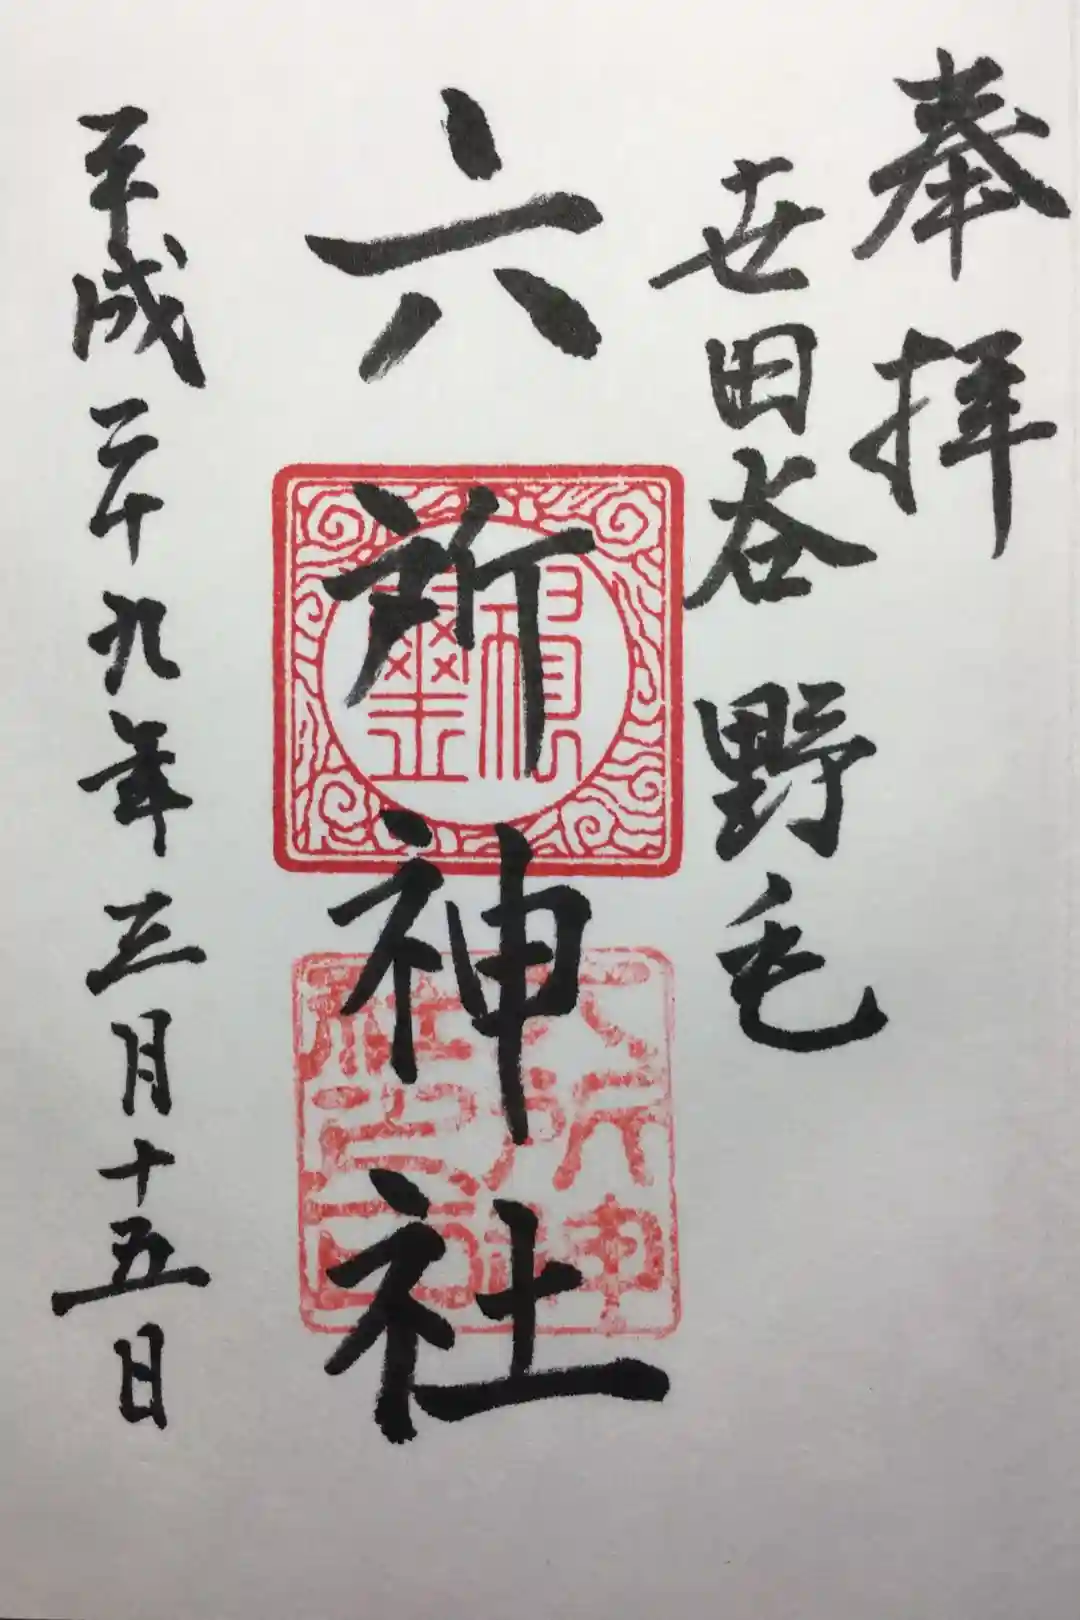 奉拝
世田谷 野毛
六所神社
平成二十九年三月十五日